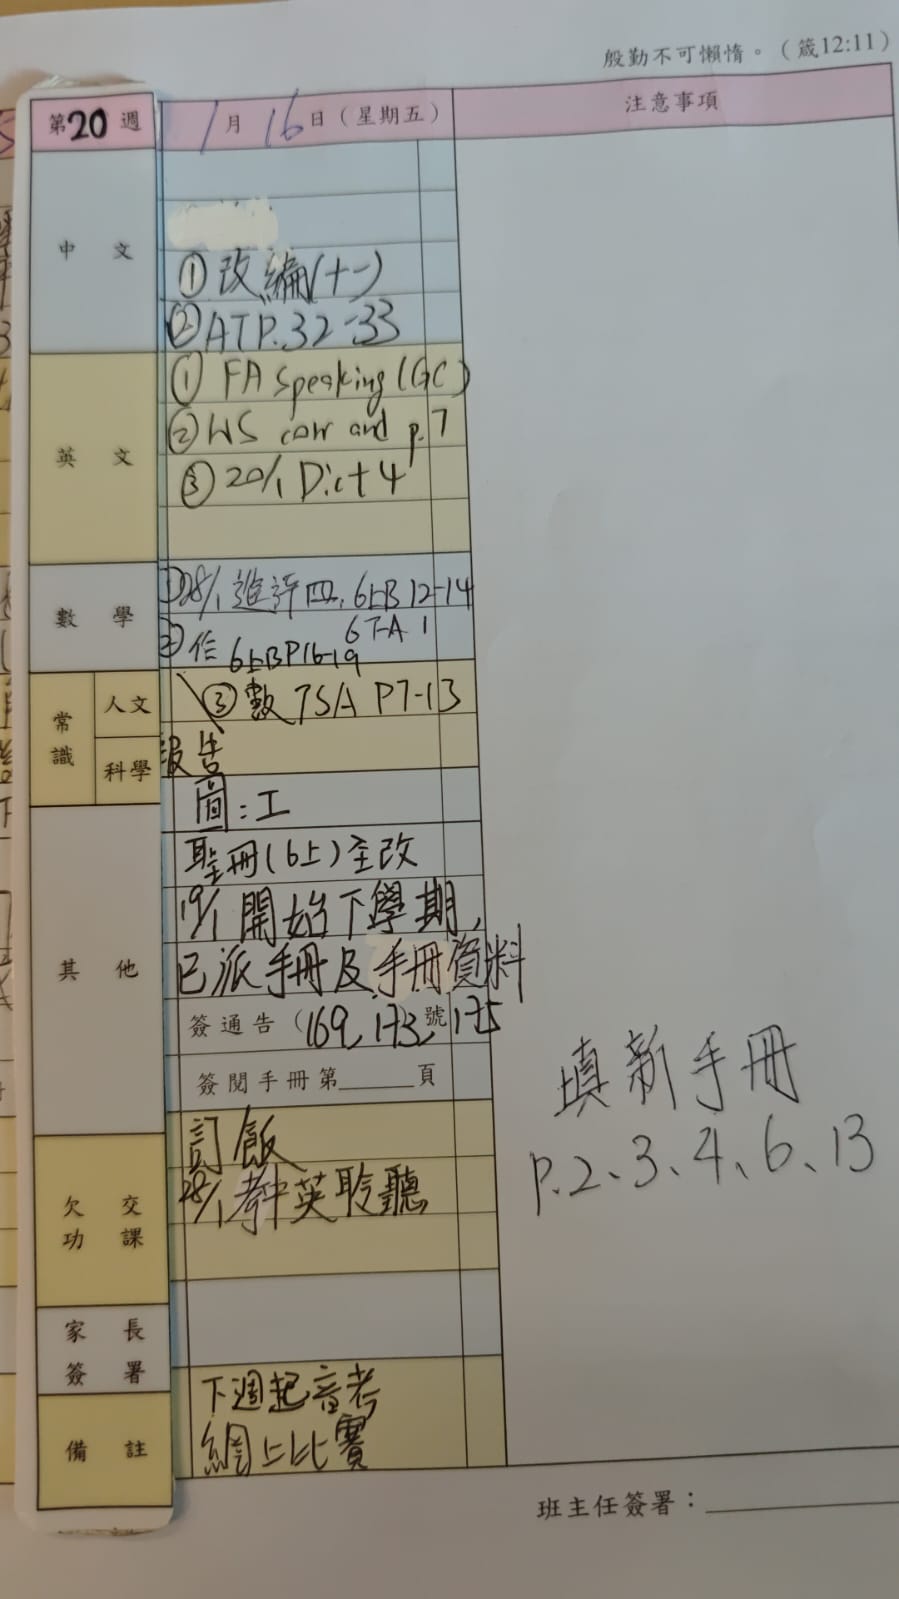 殷勤不可懶惰。（箴12:11）
第20週
1月16日（星期五）
注意事項
中文
①改編(十一)
②ATP.32-33
英文
①FA speaking (GC)
②WS corr and p.7
③20/1 Dict 4
數學
①28/1 進評四, 6上B 12-14
6下A 1
②作 6上BP16-19
③數TSA P7-13
常識
人文
科學
報告
其他
圖:工
聖冊(6上)全改
19/1 開始下學期,
已派手冊及手冊資料
簽通告（169, 173號, 175
簽閱手冊第______頁
填新手冊
P.2、3、4、6、13
欠交功課
訂飯
28/1 考中英聆聽
家長簽署
備註
下週起音考
網上比賽
班主任簽署：